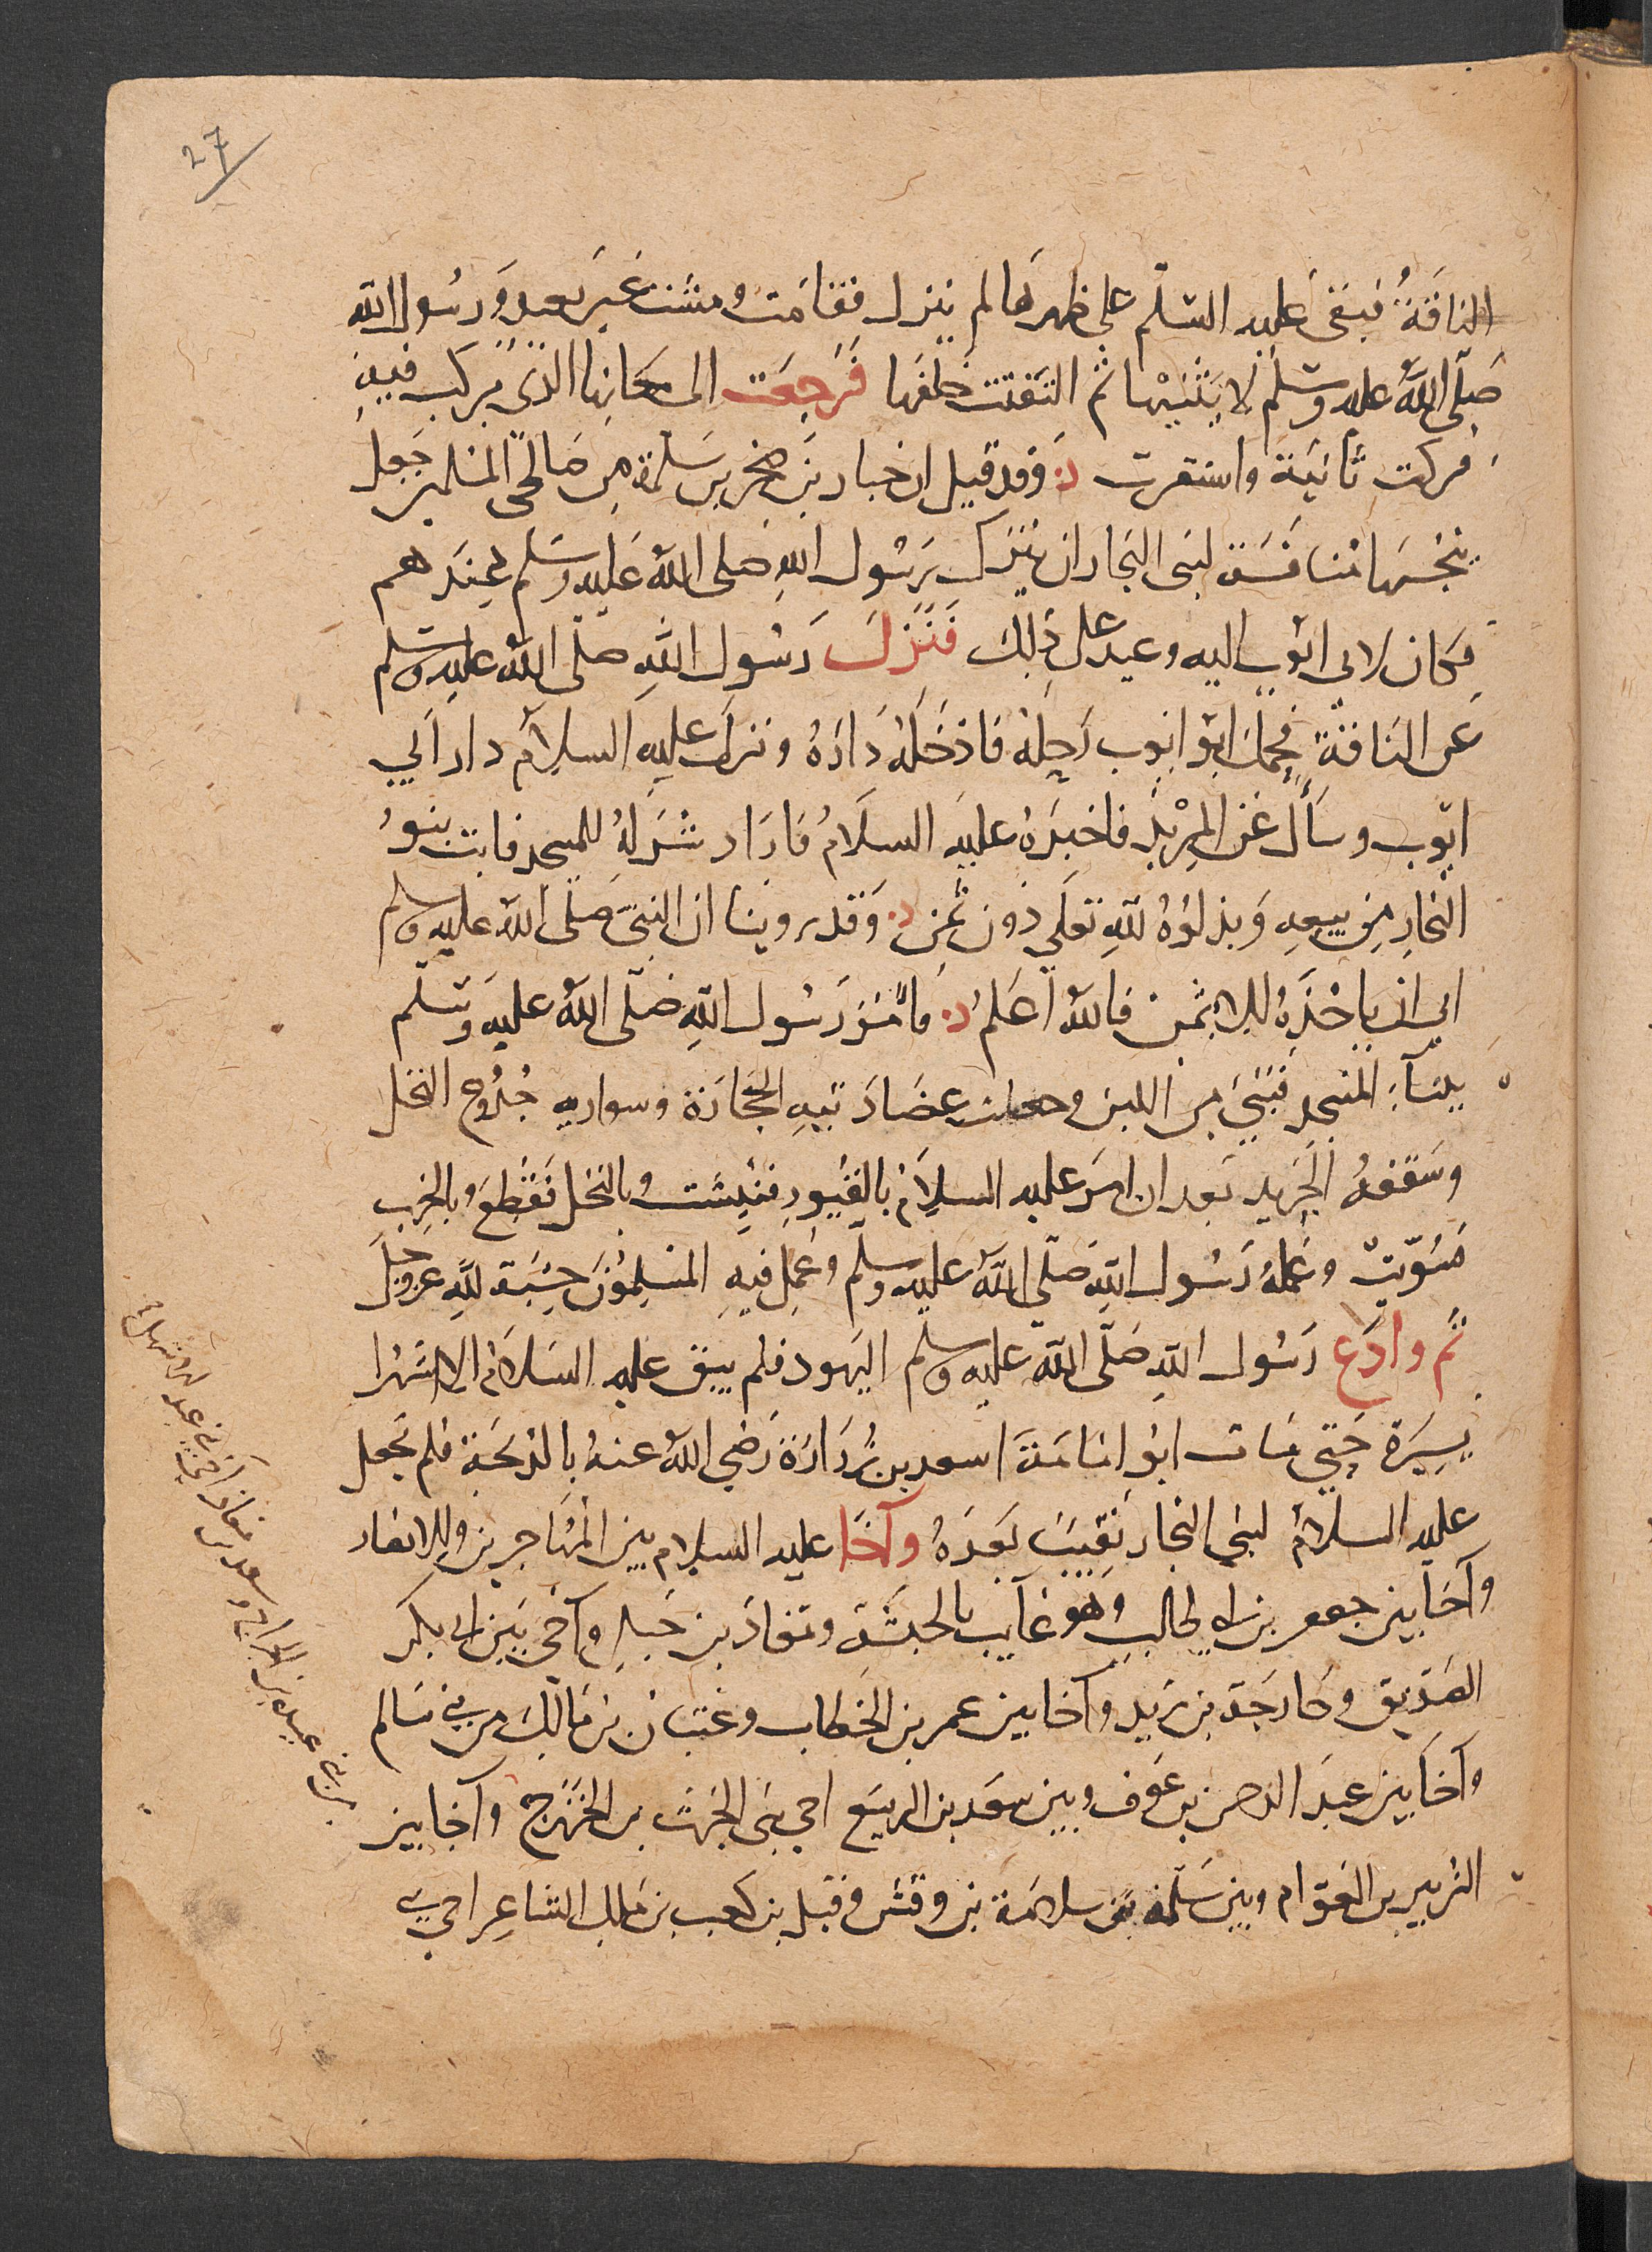 27
الناقة فبقى عليه السّلم على ظهرها لم ينزل فقامت ومشت غير بعيد ورسول الله
صلّى الله عليه وسلّم لا يثنيها ثم التفتت خلفها فرجعت الى مكانها الذى بركت فيه
فبركت ثانية واستقرت وقد قيل ان جبار بن صخر من بنى سلمة من صالحى المسلمين جعل
ينخسها منافسة لبنى النجار ان ينزل رسول الله صلى الله عليه وسلم عندهم
فنزل رسول الله صلّى الله عليه وسلم
عن الناقة فحمل ابو ايوب رحله فادخله داره ونزل عليه السلام دار ابي
ايوب وسأل عن المربد فاخبره عليه السلام فاراد شرله للمسجد فابت بنو
النجار من بيعه وبذلوه لله تعلى دون ثمن وقد روينا ان النبى صلّى الله عليه وسلم
ابى ان ياخذه الا بثمن فالله اعلم وامر رسول الله صلّى الله عليه وسلم
ببنآء المسجد فبنى من اللبن وجعلت عضادتيه الحجارة وسواريه جذوع النخل
وسقفه الجريد بعد ان امر عليه السلام بالقبور فنبشت وبالنخل فقطع وبالخرب
فسويت وعمله رسول الله صلّى الله عليه وسلم وعمل فيه المسلمون حسبة لله عز وجل
ثم وادع رسول الله صلّى الله عليه وسلم اليهود فلم يبق عليه السلام الا شهرا
يسيرة حتى مات ابو امامة اسعد بن زرارة رضي الله عنه بالذبحة فلم يجعل
عليه السلام لبنى النجار نقيبا بعده وآخا عليه السلام بين المهاجرين والانصار
وآخا بين جعفر بن ابي طالب وهو غايب بالحبشة ومعاذ بن جبل وآخى بين ابى بكر
الصديق وخارجة بن زيد وآخا بين عمر بن الخطاب وعتبان بن مالك من بني سالم
وآخا بين عبد الرحمن بن عوف وبين سعد بن الربيع اخى بنى الحرث بن الخزرج وآخا بين
الزبير بن العوام وبين سلمة بن سلامة بن وقش وقيل بن كعب بن مالك الشاعر اخى بنى